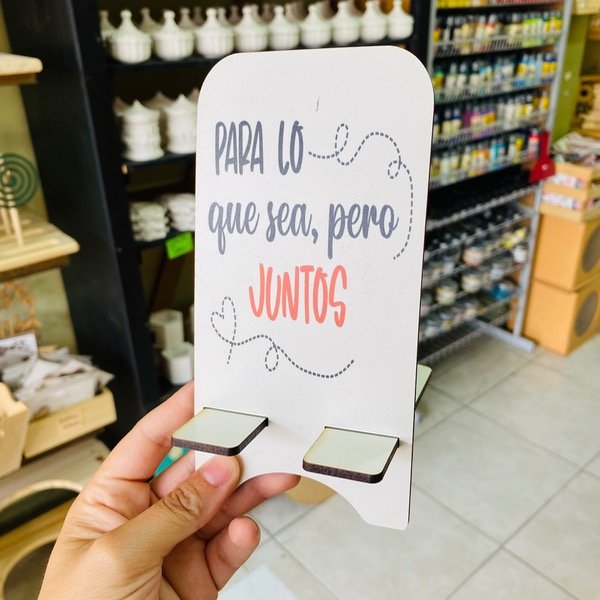 PARA LO
que sea, pero
JUNTOS